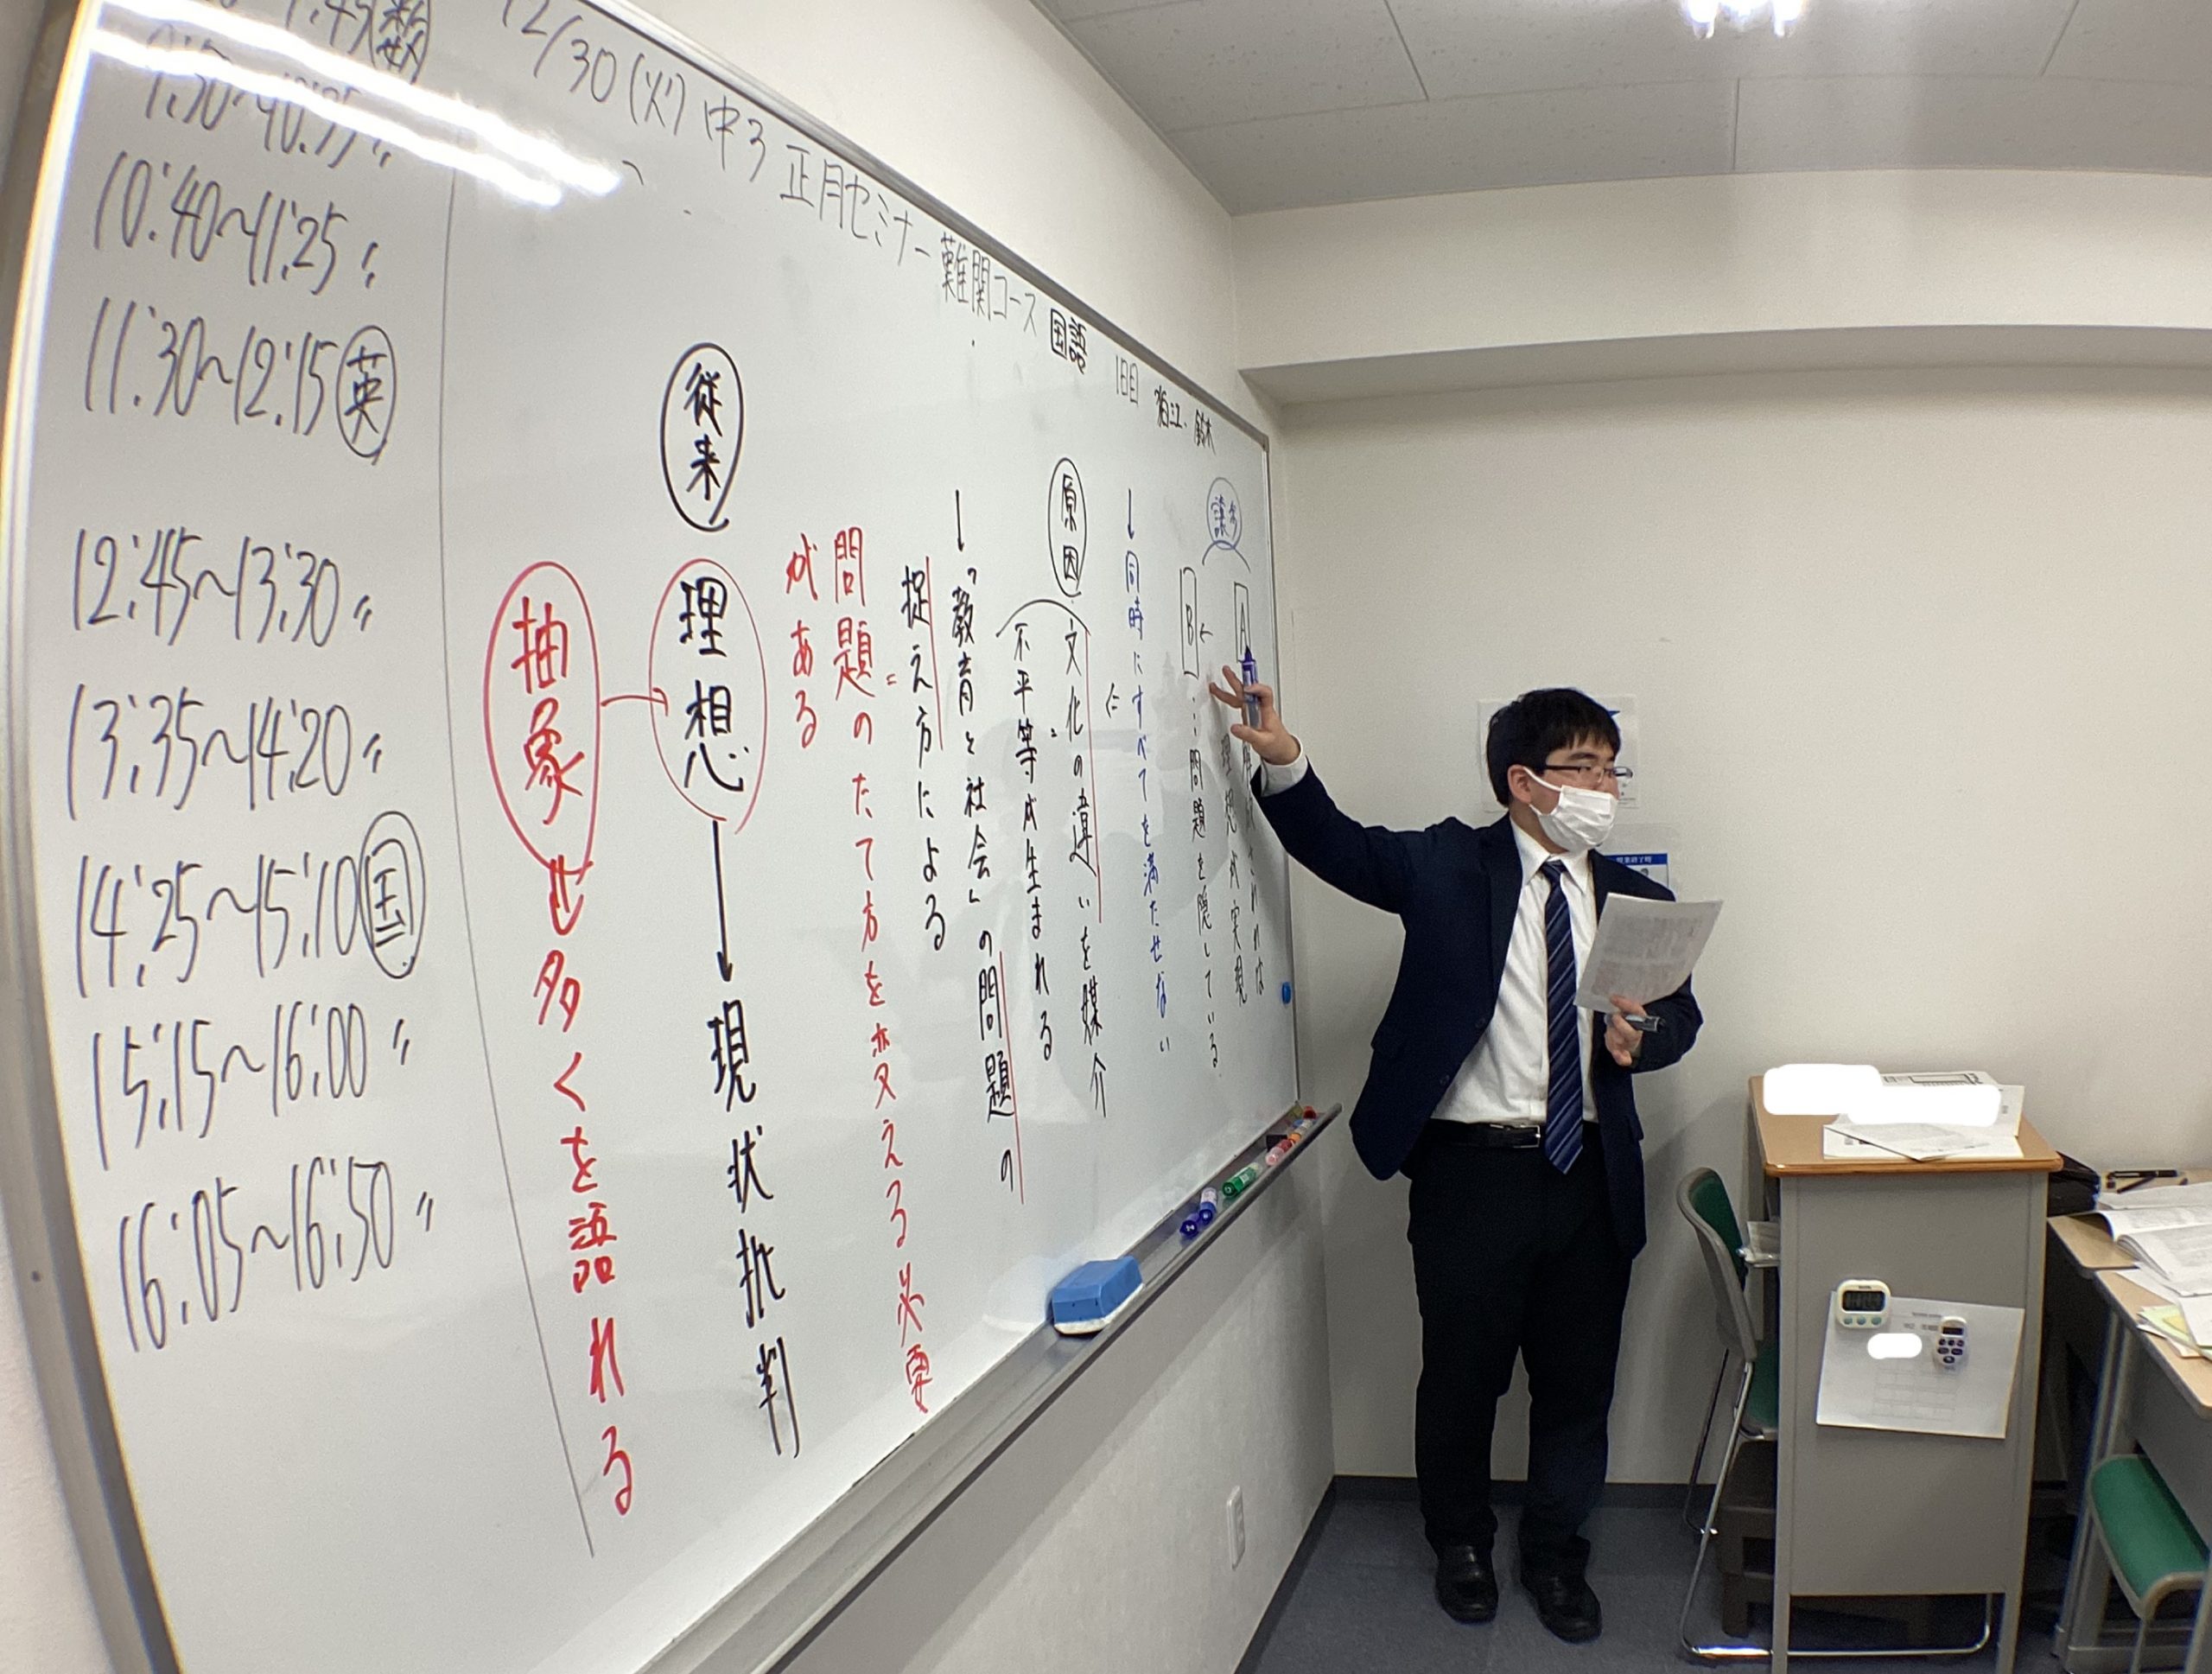 12/30(火) 中3 正月セミナー 難関コース 国語 1日目 狛江・鈴木
A
理想が実現
B…問題を隠している
↓同時にすべてを満たせない
原因
文化の違いを媒介に
=
不平等が生まれる
↓「教育と社会」の問題の
捉え方による
=
問題のたて方を変える必要
がある
従来
理想→現状批判
抽象
も多くを語れる
数
10:40~11:25 〃
11:30~12:15 英
12:45~13:30 〃
13:35~14:20 〃
14:25~15:10 国
15:15~16:00 〃
16:05~16:50 〃